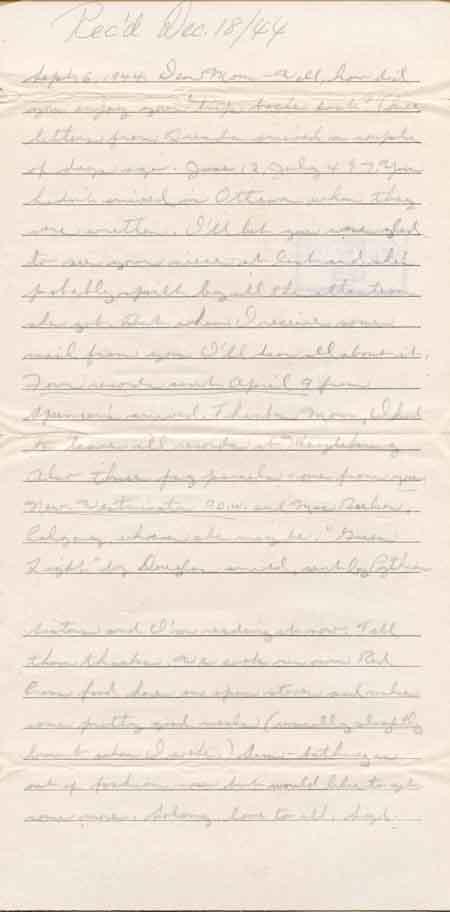 Rec'd Dec. 18/44
Sept. 6, 1944. Dear Mom - Well, how did
you enjoy your trip back east? Three
letters from arrived a couple
of days ago. June 12, July 4 & 7. You
hadn't arrived in Ottawa when they
were written. I'll bet you were glad
to see your niece at last and she'll
probably spoilt by all the attention
she got. But when I receive some
mail from you I'll hear all about it.
Four records sent April 9 from
arrived. Thanks Mom, I had
to leave all records at
Also three parcels - one from you
New Westminster and Mrs.
Calgary whoever she may be. "Green
Light" by Douglas arrived, sent by Pythian
Sisters and I'm reading it now. Tell
them thanks. We cook our own Red
Cross food here on open stoves and make
some pretty good meals (usually slightly
burnt when I cook!)
out of fashion now but would like to get
some more. So long, love to all,